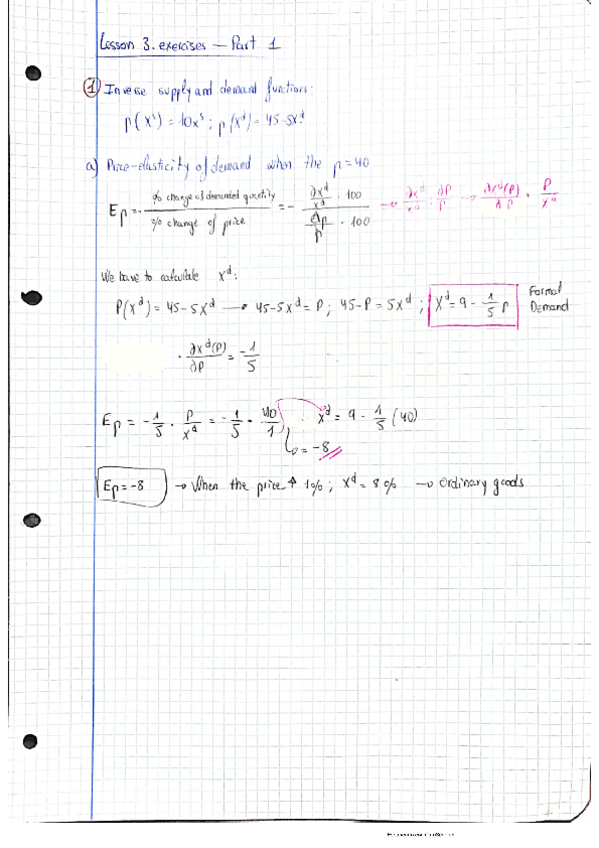 Lesson 3. exercises — Part 1
① Inverse supply and demand functions:
p(xˢ) = 10xˢ; p(xᵈ) = 45-5xᵈ
a) Price-elasticity of demand when the p=40
Ep = - % change of demanded quantity / % change of price = - (∂xᵈ/xᵈ · 100) / (∆p/p · 100) → ∂xᵈ/xᵈ : ∂P/P → ∂xᵈ(p)/∆P · P/xᵈ
We have to calculate xᵈ:
P(xᵈ) = 45-5xᵈ → 45-5xᵈ = P; 45-P = 5xᵈ; xᵈ = 9 - 1/5 P Formal Demand
· ∂xᵈ(P)/∂P = -1/5
Ep = -1/5 · P/xᵈ = -1/5 · 40/1 xᵈ = 9 - 1/5 (40)
= -8
Ep = -8 → When the price ↑ 1%; xᵈ = 8% → Ordinary goods